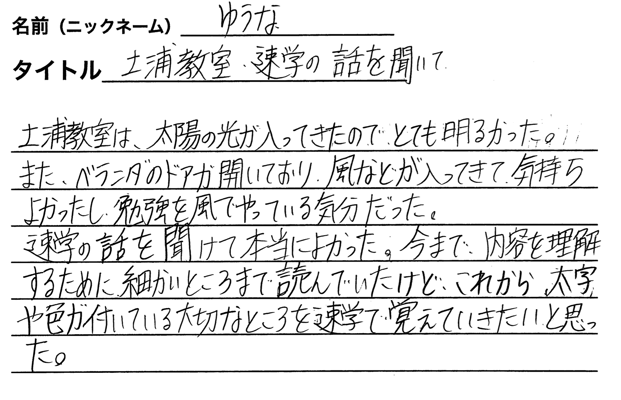 名前（ニックネーム） ゆうな
タイトル 土浦教室・速学の話を聞いて
土浦教室は、太陽の光が入ってきたのでとても明るかった。
また、ベランダのドアが開いており、風などが入ってきて、気持ち
よかったし、勉強を風でやっている気分だった。
速学の話を聞けて本当によかった。今まで、内容を理解
するために細かいところまで読んでいたけど、これから、太字
や色が付いている大切なところを速学で覚えていきたいと思っ
た。